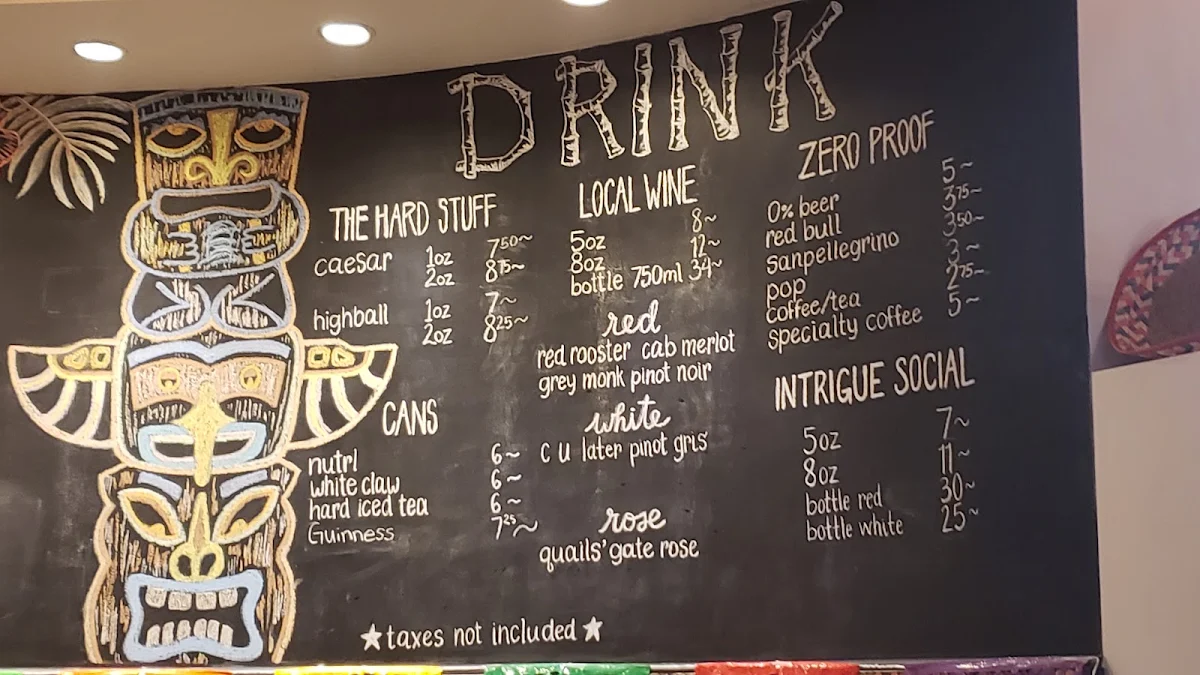 DRINK
THE HARD STUFF
caesar 1oz 7⁵⁰~
2oz 8⁷⁵~
highball 1oz 7~
2oz 8²⁵~
CANS
nutrl 6~
white claw 6~
hard iced tea 6~
Guinness 7²⁵~
LOCAL WINE
5oz 8~
8oz 12~
bottle 750ml 34~
red
red rooster cab merlot
grey monk pinot noir
white
c u later pinot gris
rose
quails' gate rose
ZERO PROOF
0% beer 5~
red bull 3⁷⁵~
sanpellegrino 3⁵⁰~
pop 3~
coffee/tea 2⁷⁵~
specialty coffee 5~
INTRIGUE SOCIAL
5oz 7~
8oz 11~
bottle red 30~
bottle white 25~
★taxes not included★